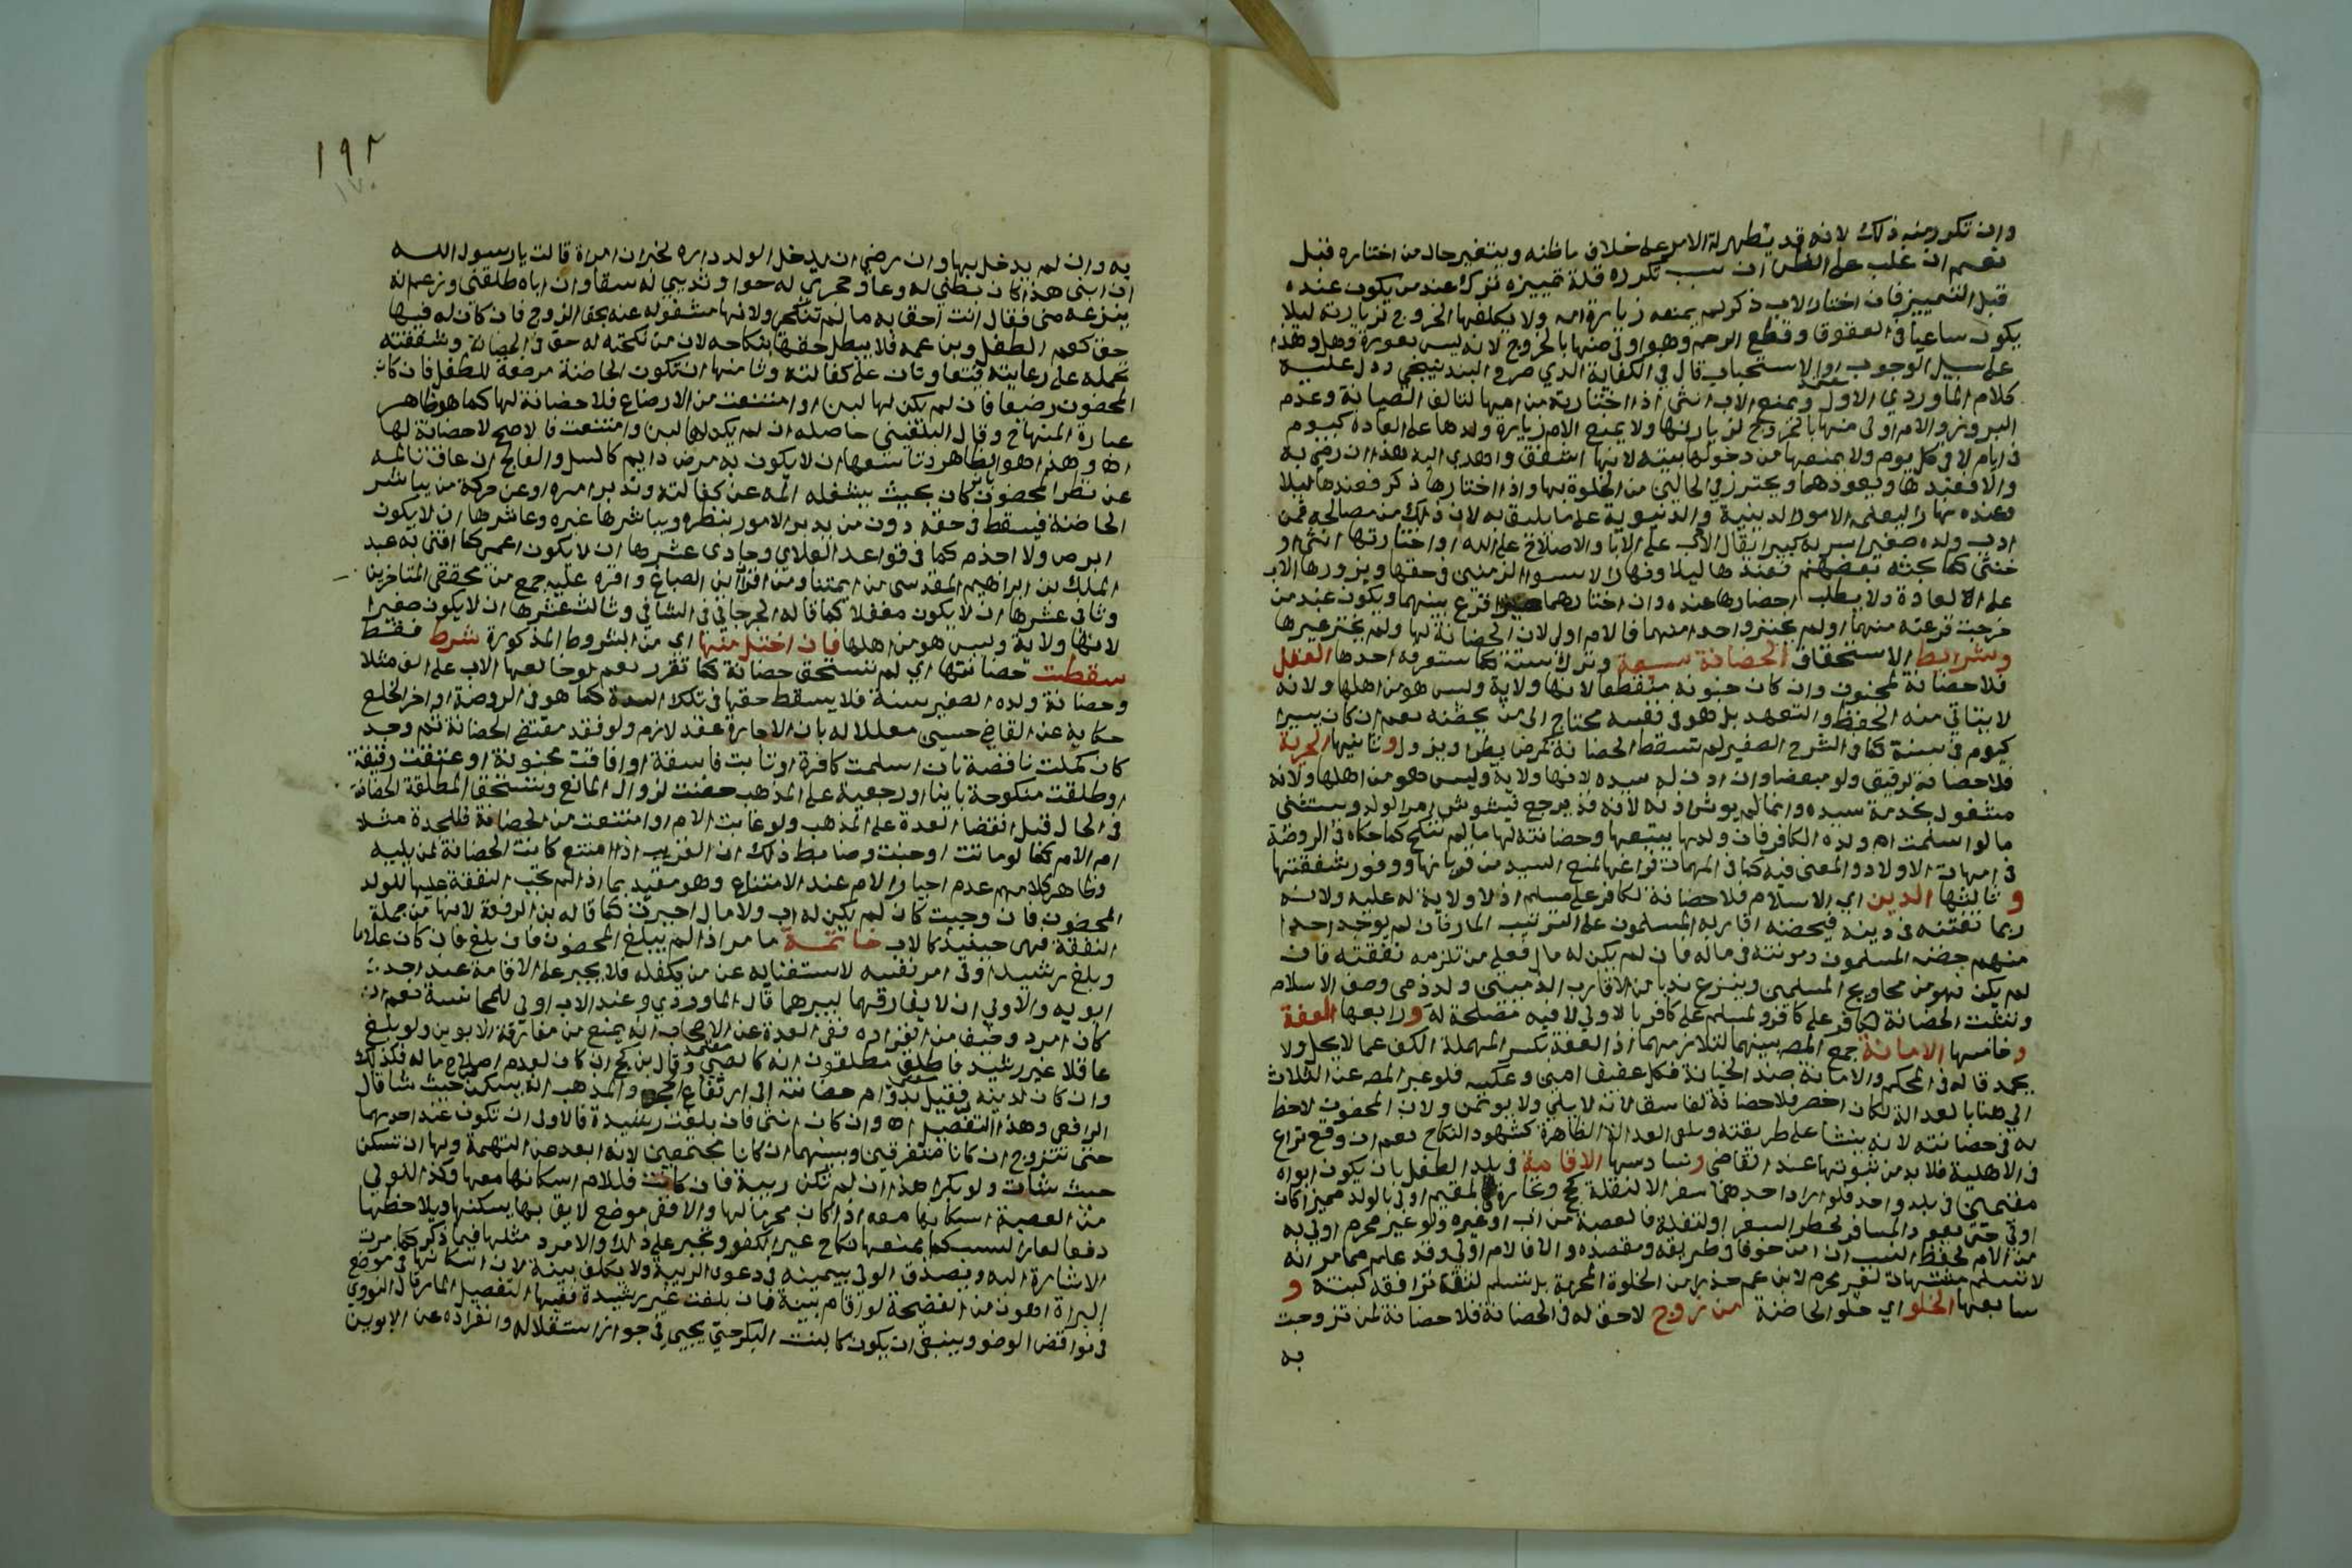 وان تكرر منه ذلك لانه قد يظهر له الامر على خلاف ما ظنه ويتغير حال من اختاره قبل
نعم ان غلب على الظن ان سبب تكرره قلة تمييزه ترك عند من يكون عنده
قبل التمييز فان اختار الاب ذكر لم يمنعه زيارة امه ولا يكلفها الخروج لزيارته ليلا
يكون ساعيا في العقوق وقطع الرحم وهو اولى منها بالخروج لانه ليس بعورة وهل هذا
على سبيل الوجوب او الاستحباب قال في الكفاية الذي صرح به البندنيجي ودل عليه
كلام الماوردي الاول ويمنع الاب انثى اذا اختارته من امها لتالف الصيانة وعدم
البروز والام اولى منها بالخروج لزيارتها ولا يمنع الام زيارة ولدها على العادة كيوم
في ايام لا في كل يوم ولا يمنعها من دخولها بيته لانها اشفق واهدى اليه هذا ان رضي به
والا فعندها ويعودهما ويحترز في الحالين من الخلوة بها واذا اختارها ذكر فعندها ليلا
وعنده نهارا ليعلمه الامور الدينية والدنيوية على ما يليق به لان ذلك من مصالحه فمن
ادب ولده صغيرا سر به كبيرا يقال الادب على الابا والاصلاح على الله او اختارتها انثى او
خنثى كما بحثه بعضهم فعندها ليلا ونهارا لاستوا الزمنين في حقها ويزورها الاب
على العادة ولا يطلب احضارها عنده وان اختارهما اقرع بينهما ويكون عند من
خرجت قرعته منهما او لم يختر واحدا منهما فالام اولى لان الحضانة لها ولم يختر غيرها
وشرايط الاستحقاق الحضانة سبعة وترك ستة كما ستعرفه احدها العقل
فلا حضانة لمجنون وان كان جنونه متقطعا لانها ولاية وليس هو من اهلها ولانه
لا يتاتي منه الحفظ والتعهد بل هو في نفسه محتاج الى من يحضنه نعم ان كان يسيرا
كيوم في سنة كما في الشرح الصغير لم تسقط الحضانة كمرض يطرا ويزول وثانيها الحرية
فلا حضانة لرقيق ولو مبعضا وان اذن له سيده لانها ولاية وليس هو من اهلها ولانه
مشغول بخدمة سيده وانما لم يوثر اذنه لانه قد يرجع فيشوش امر الولد ويستثنى
ما لو اسلمت ام ولده الكافر فان ولدها يتبعها وحضانته لها ما لم تنكح كما حكاه في الروضة
في امهات الاولاد والمعنى فيه كما في المهمات فراغها لمنع السيد من قربانها ووفور شفقتها
وثالثها الدين اي الاسلام فلا حضانة لكافر على مسلم اذ لا ولاية له عليه ولانه
ربما يفتنه في دينه فيحضنه اقاربه المسلمون على الترتيب المار فان لم يوجد احد
منهم حضنه المسلمون ومونته في ماله فان لم يكن له مال فعلى من تلزمه نفقته فان
لم يكن فهو من محاويج المسلمين وينزع ندبا من الاقارب الذميين ولد ذمي وصف الاسلام
وتثبت الحضانة لكافر على كافر ولمسلم على كافر بالاولى لان فيه مصلحة له ورابعها العفة
وخامسها الامانة جمع المص بينهما لتلازمهما اذ العفة بكسر المهملة الكف عما لا يحل ولا
يحمد قاله في المحكم والامانة ضد الخيانة فكل عفيف امين وعكسه فلو عبر المص عن الثلاث
الى هنا بالعدالة لكان اخصر فلا حضانة لفاسق لانه لا يلي ولا يوتمن ولان المحضون لاحظ
له في حضانته لانه ينشا على طريقته وتكفي العدالة الظاهرة كشهود النكاح نعم ان وقع نزاع
في الاهلية فلا بد من ثبوتها عند القاضي وسادسها الاقامة في بلد الطفل بان يكون ابواه
مقيمين في بلد واحد فلو اراد احدهما سفرا لا لنقلة كحج وتجارة فالمقيم اولى بالولد مميزا كان
اولى حتى يعود المسافر لخطر السفر او لنقلة فالعصبة من اب او غيره ولو غير محرم اولى به
من الام لحفظ النسب ان امن خوفا في طريقه ومقصده والا فالام اولى وقد علم مما مر انه
لا تسلم مشتهاة لغير محرم لابن عم حذرا من الخلوة المحرمة بل تسلم لثقة ترافقه كبنته و
سابعها الخلو اي خلو الحاضنة من زوج لا حق له في الحضانة فلا حضانة لمن تزوجت
به
١٩٢
١٧٠
به وان لم يدخل بها وان رضي ان يدخل الولد داره لخبر ان امراة قالت يا رسول الله
ان ابنى هذا كان بطني له وعا وحجري له حوا وثديي له سقا وان اباه طلقني وزعم انه
ينزعه منى فقال انت احق به ما لم تنكحي ولانها مشغوله عنه بحق الزوج فان كان له فيها
حق كعم الطفل وبن عمه فلا يبطل حقها بنكاحه لان من نكحته له حق في الحضانة وشفقته
تحمله على رعايته فيتعاونان على كفالته وثامنها ان تكون الحاضنة مرضعة للطفل فان كان
المحضون رضيعا فان لم يكن لها لبن او امتنعت من الارضاع فلا حضانة لها كما هو ظاهر
عبارة المنهاج وقال البلقيني حاصله ان لم يكن لها لبن وامتنعت فالاصح لا حضانة لها
اه وهذا هو الظاهر وتاسعها ان لا يكون به مرض دايم كالسل والفالج ان عاق تالمه
عن نظر المحضون بان كان بحيث يشغله المه عن كفالته وتدبير امره او عن حركة من يباشر
الحاضنة فيسقط في حقه دون من يدبر الامور بنظره ويباشرها غيره وعاشرها ان لا يكون
ابرص ولا اجذم كما في قواعد العلاي وحادى عشرها ان لا يكون اعمى كما افتى به عبد
الملك بن ابراهيم المقدسي من ايمتنا ومن اقران بن الصباغ واقره عليه جمع من محققى المتاخرين
وثانى عشرها ان لا يكون مغفلا كما قاله الجرجاني في الشافي وثالث عشرها ان لا يكون صغيرا
لانها ولاية وليس هو من اهلها فان اختل منها اي من الشروط المذكورة شرط فقط
سقطت حضانتها اي لم تستحق حضانة كما تقرر نعم لو خالعها الاب على الف مثلا
وحضانة ولده الصغير سنة فلا يسقط حقها في تلك المدة كما هو في الروضة اواخر الخلع
حكاية عن القاضي حسين معللا له بان الاجارة عقد لازم ولو فقد مقتضى الحضانة ثم وجد
كان كملت ناقصة بان اسلمت كافرة او تابت فاسقة او افاقت مجنونة او عتقت رقيقة
او طلقت منكوحة باينا او رجعية على المذهب حضنت لزوال المانع وتستحق المطلقة الحضانة
في الحال قبل انقضا العدة على المذهب ولو غابت الام او امتنعت من الحضانة فللجدة مثلا
ام الام كما لو ماتت او جنت وضابط ذلك ان القريب اذا امتنع كانت الحضانة لمن يليه
وظاهر كلامهم عدم اجبار الام عند الامتناع وهو مقيد بما اذا لم تجب النفقة عليها للولد
المحضون فان وجبت كان لم يكن له اب ولا مال اجبرت كما قاله بن الرفعة لانها من جملة
النفقة فهى حينيذ كالاب خاتمة ما مر اذا لم يبلغ المحضون فان بلغ فان كان غلاما
وبلغ رشيدا ولى امر نفسه لاستغنايه عن من يكفله فلا يجبر على الاقامة عند احد
ابويه والاولى ان لا يفارقهما ليبرهما قال الماوردي وعند الاب اولى للمجانسة نعم ان
كان امرد وخيف من انفراده ففى العدة عن الاصحاب انه يمنع من مفارقة الابوين ولو بلغ
عاقلا غير رشيد فاطلق مطلقون انه كالصبي وقال بن كج ان كان لعدم اصلاح ماله فكذلك
وان كان لدينه فقيل تدوام حضانته الى ارتفاع الحجر والمذهب انه يسكن حيث شا قال
الرافعي وهذا التفصيل اه وان كان انثى فان بلغت رشيدة فالاولى ان تكون عند احدهما
حتى تتزوج ان كانا متفرقين وبينهما ان كانا مجتمعين لانه ابعد عن التهمة ولها ان تسكن
حيث شات ولو بكرا هذا ان لم تكن ريبة فان كانت فللام اسكانها معها وكذا للولي
من العصبة اسكانها معه اذا كان محرما لها والا ففي موضع لايق بها يسكنها ويلاحظها
دفعا لعار النسب كما يمنعها نكاح غير الكفو وتجبر على ذلك والامرد مثلها فيما ذكر كما مرت
الاشارة اليه ويصدق الولى بيمينه في دعوى الريبة ولا يكلف بينة لان اسكانها في موضع
البراة اهون من الفضيحة لو اقام بينة فان بلغت غير رشيدة ففيها التفصيل المار قال النووي
في نواقض الوضو وينبغي ان يكون كالبنت البكر حتى يجيي في جواز استقلاله وانفراده عن الابوين